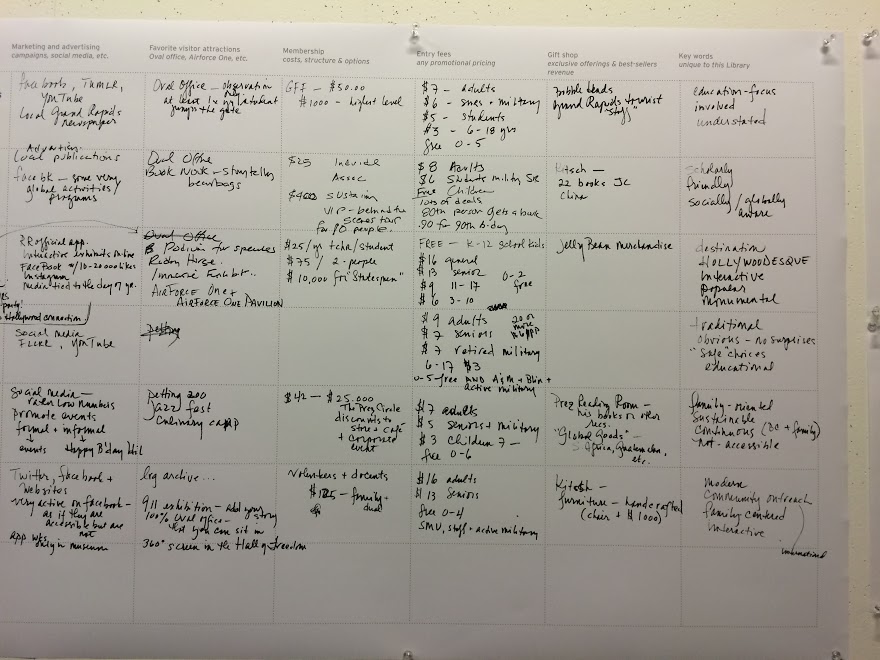 Marketing and advertising
campaigns, social media, etc.
Favorite visitor attractions
Oval office, Airforce One, etc.
Membership
costs, structure & options
Entry fees
any promotional pricing
Gift shop
exclusive offerings & best-sellers
revenue
Key words
unique to this Library
facebook, Tumblr,
YouTube
Local Grand Rapids
newspaper
Oval Office – observation
at least 1x a student
jumps the gate
GFF – $50.00
$1000 – highest level
$7 – adults
$6 – military
$5 – students
$3 – 6-18 yrs
free 0-5
Bobble heads
Grand Rapids tourist
"stuff"
education-focus
involved
understated
Local publications
facebk – some very
global activities
programs
Oval Office
Book Nook – storytelling
beanbags
$25
Assoc
Sustain
VIP – behind the
scenes tour
for 10 people.
$8 Adults
$6 Students military
Free Children
lots of deals
.90 for 90th b-day
Kitsch –
22 books JC
China
scholarly
friendly
socially/globally
aware
RR official app.
Interactive exhibits online
FaceBook w/10-20000 likes
Instagram
Media tied to the day of yr.
Hollywood connection
Oval Office
Podium for speeches
Immersive Exhibit..
AirForce One +
AirForce One Pavilion
$25/yr tchr/student
$75 / 2-people
$10,000 for "Statesperson"
FREE – K-12 school kids
$16 general
$13 senior
$9 11-17
$6 3-10
0-2
free
Jelly Bean merchandise
destination
HOLLYWOODESQUE
Interactive
popular
monumental
Social media
FLICKR, YouTube
Petting
$9 adults
$7 seniors
$7 retired military
6-17 $3
0-5-free AND A&M + Blinn +
active military
20 or
more
traditional
obvious – no surprises
"safe" choices
educational
Social media –
rather low numbers
promote events
formal + informal
events
Happy B'day Bill
Petting zoo
Jazz fest
Culinary camp
$42 – $25.000
The Pres Circle
discounts to
store & café
+ corporate
event
$7 adults
$5 seniors + military
$3 children 7 –
free 0-6
Prez Reading Room –
his books or other
recs.
"Global Goods" –
Africa, Guatemalan,
etc.
family-oriented
Sustainable
Continuous (BC + family)
not-accessible
Twitter, facebook +
websites
very active on facebook –
as if they are
accessible but are
not
only in museum
log archive...
9 11 exhibition – add your story
100% Oval Office –
that you can sit in
360° screen in the Hall of Freedom
Volunteers + docents
family –
dual
$16 adults
$13 Seniors
free 0-4
SMU, staff + active military
Kitsch –
furniture – handcrafted
(chair + $1000)
modern
community outreach
family centered
interactive
international